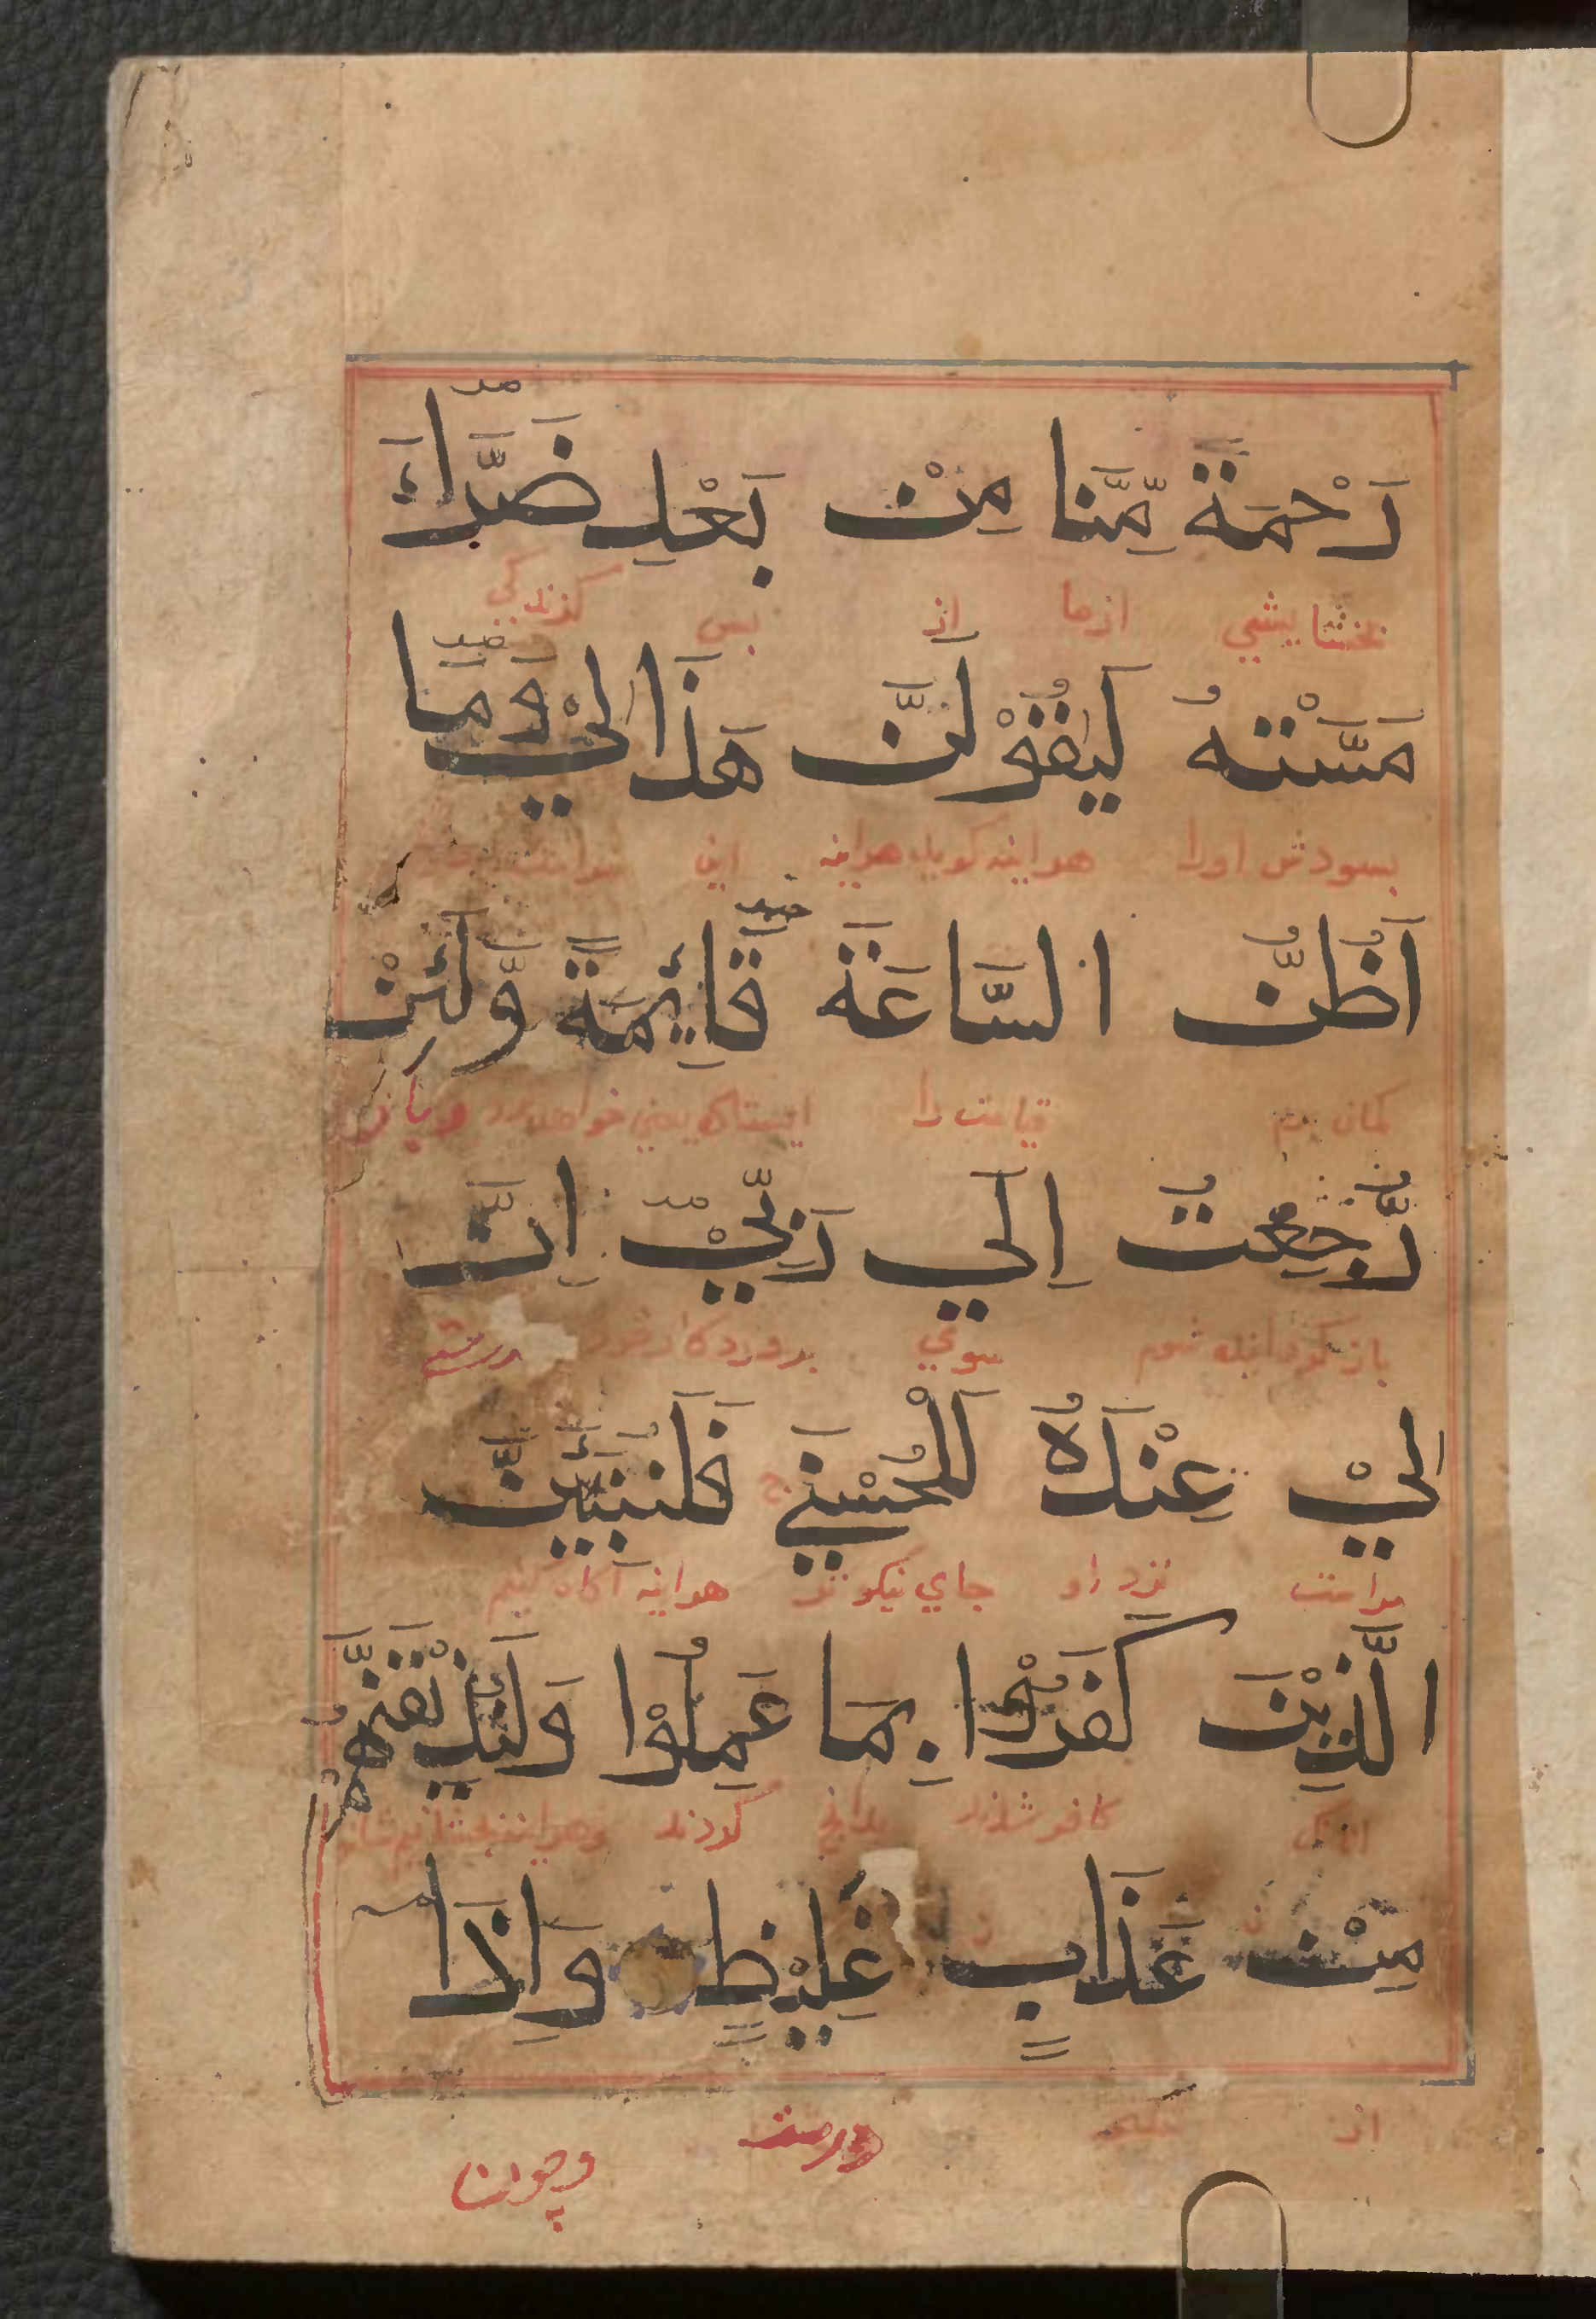 رَحْمَةً مِّنَّا مِنْ بَعْدِ ضَرَّاءَ
بخشایشي از ما از پس کزندکي
مَسَّتْهُ لَيَقُوْلَنَّ هَذَا لِيْ وَمَا
بسودش اورا هراینه کوید هراینه این مراست
اَظُنُّ السَّاعَةَ قَائِمَةً وَّلَئِنْ
کمان برم قیامت را ایستاده یعني خواهد بود و باز
رُّجِعْتُ اِلَي رَبِّيْ اِنَّ
باز کردانیده شوم سوي پروردکار خود درستي
لِيْ عِنْدَهُ لَلْحُسْنَي فَلَنُنَبِّئَنَّ
مراست نزد او جاي نیکوتر هراینه آکاه کنیم
الَّذِيْنَ كَفَرُوْا بِمَا عَمِلُوْا وَلَنُذِيْقَنَّهُمْ
کافر شدند بدانچ کردند وهراینه بچشانیم شان
مِنْ عَذَابٍ غَلِيْظٍ وَاِذَا
از درست وچون